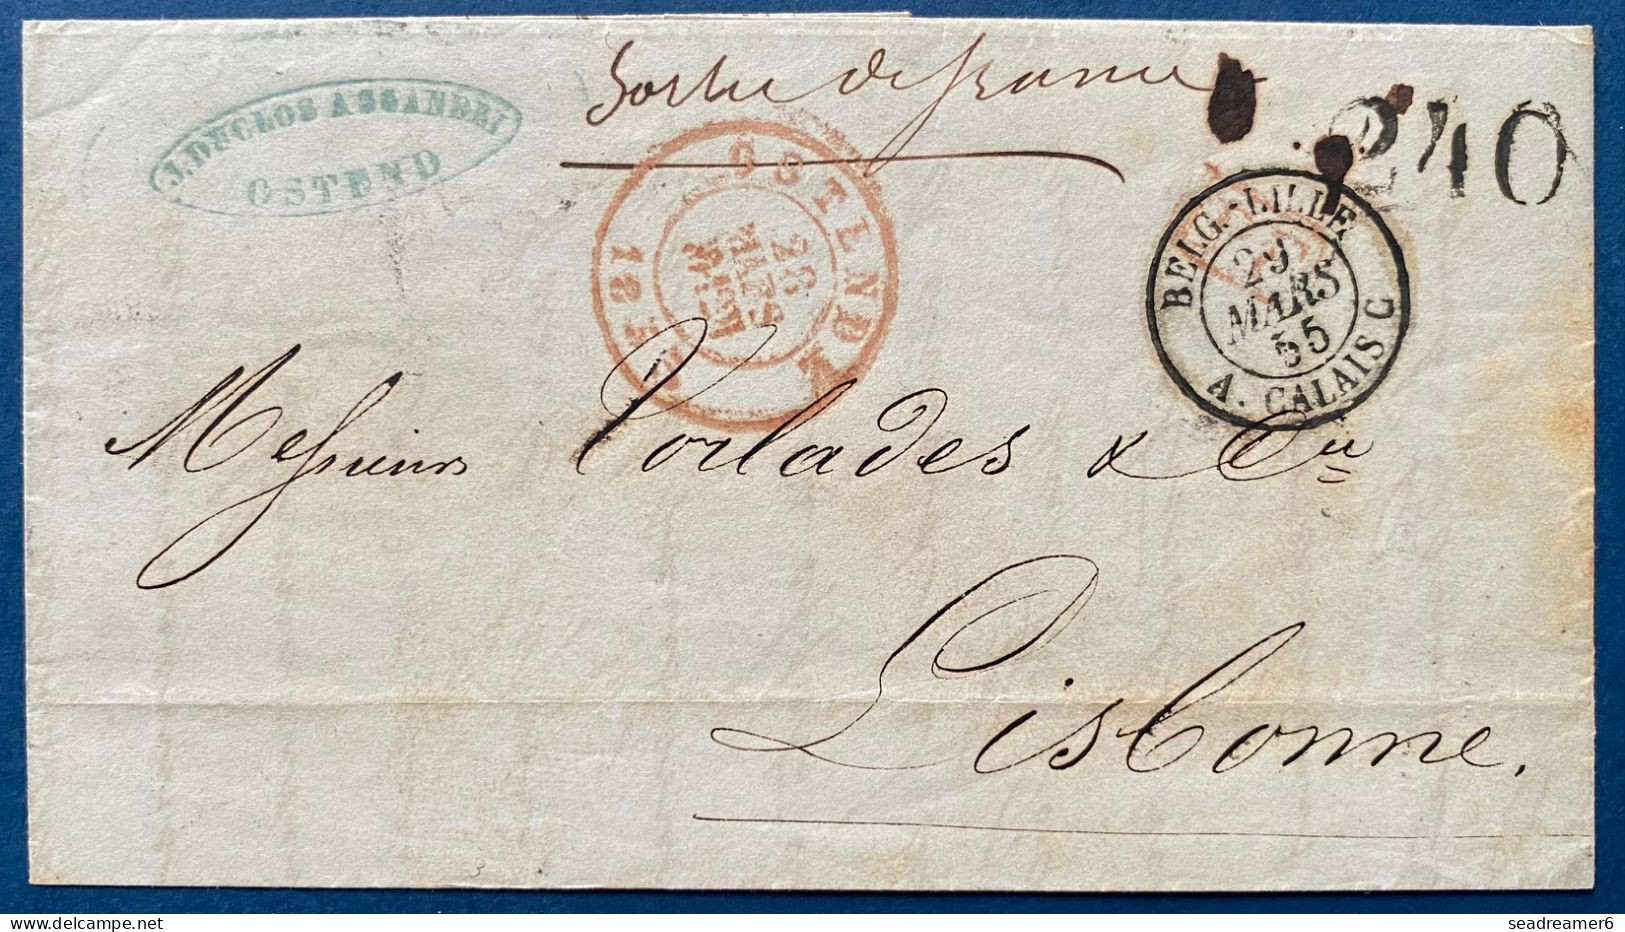 J. DUCLOS ASSANDRI
OSTEND
Sortie de france
240
OSTENDE
28
MARS
1855
BELG.-LILLE
29
MARS
55
A. CALAIS C
Messieurs Torlades & Cie
Lisbonne.
seadreamer6